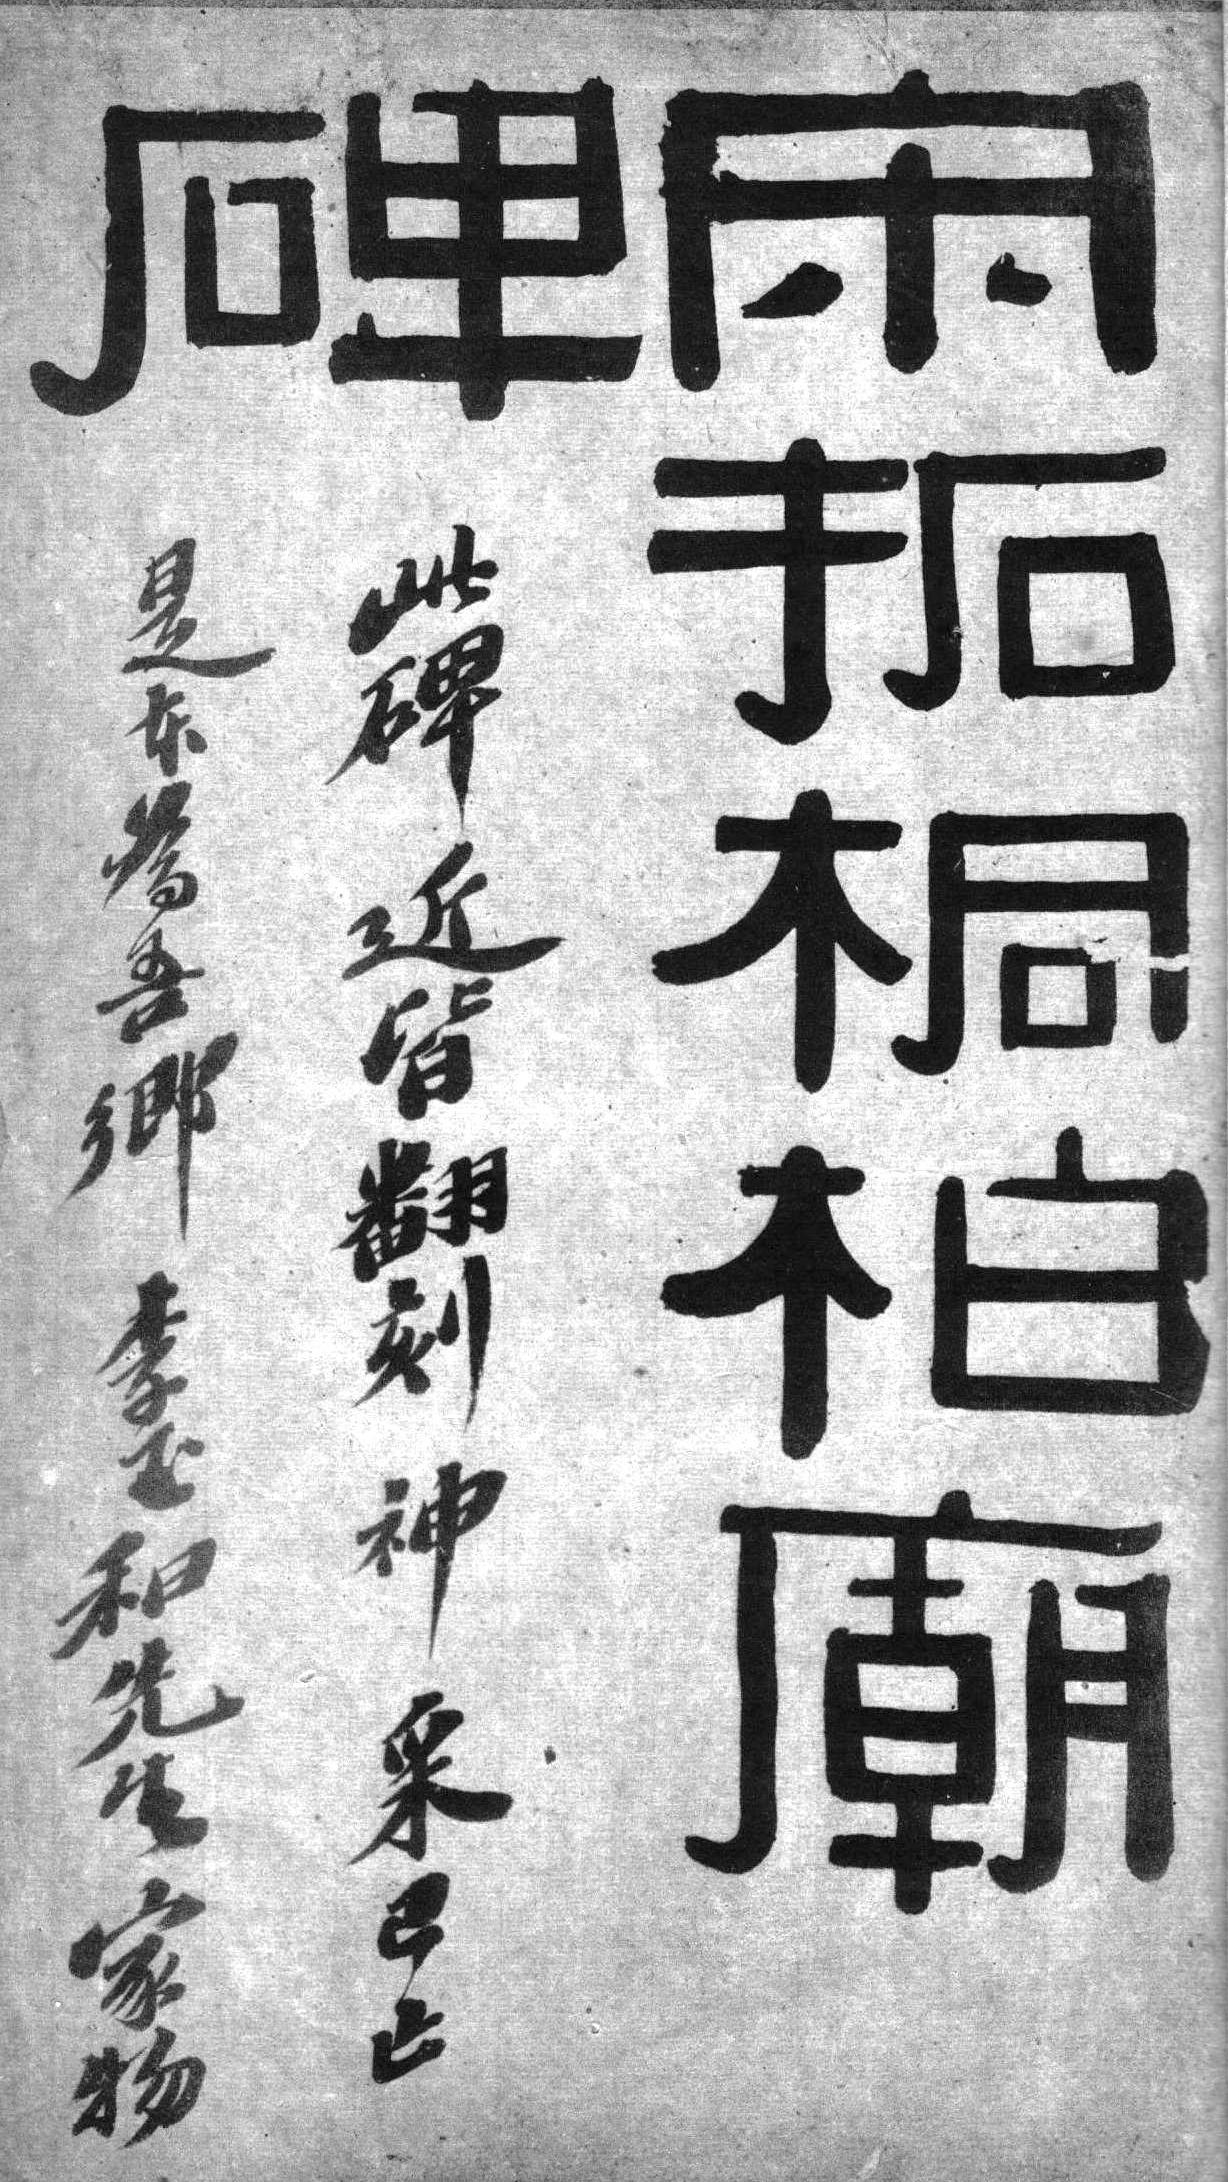 宋拓桐柏廟
碑
此碑近皆翻刻神采已亾
是本為吾鄉李玉和先生家物